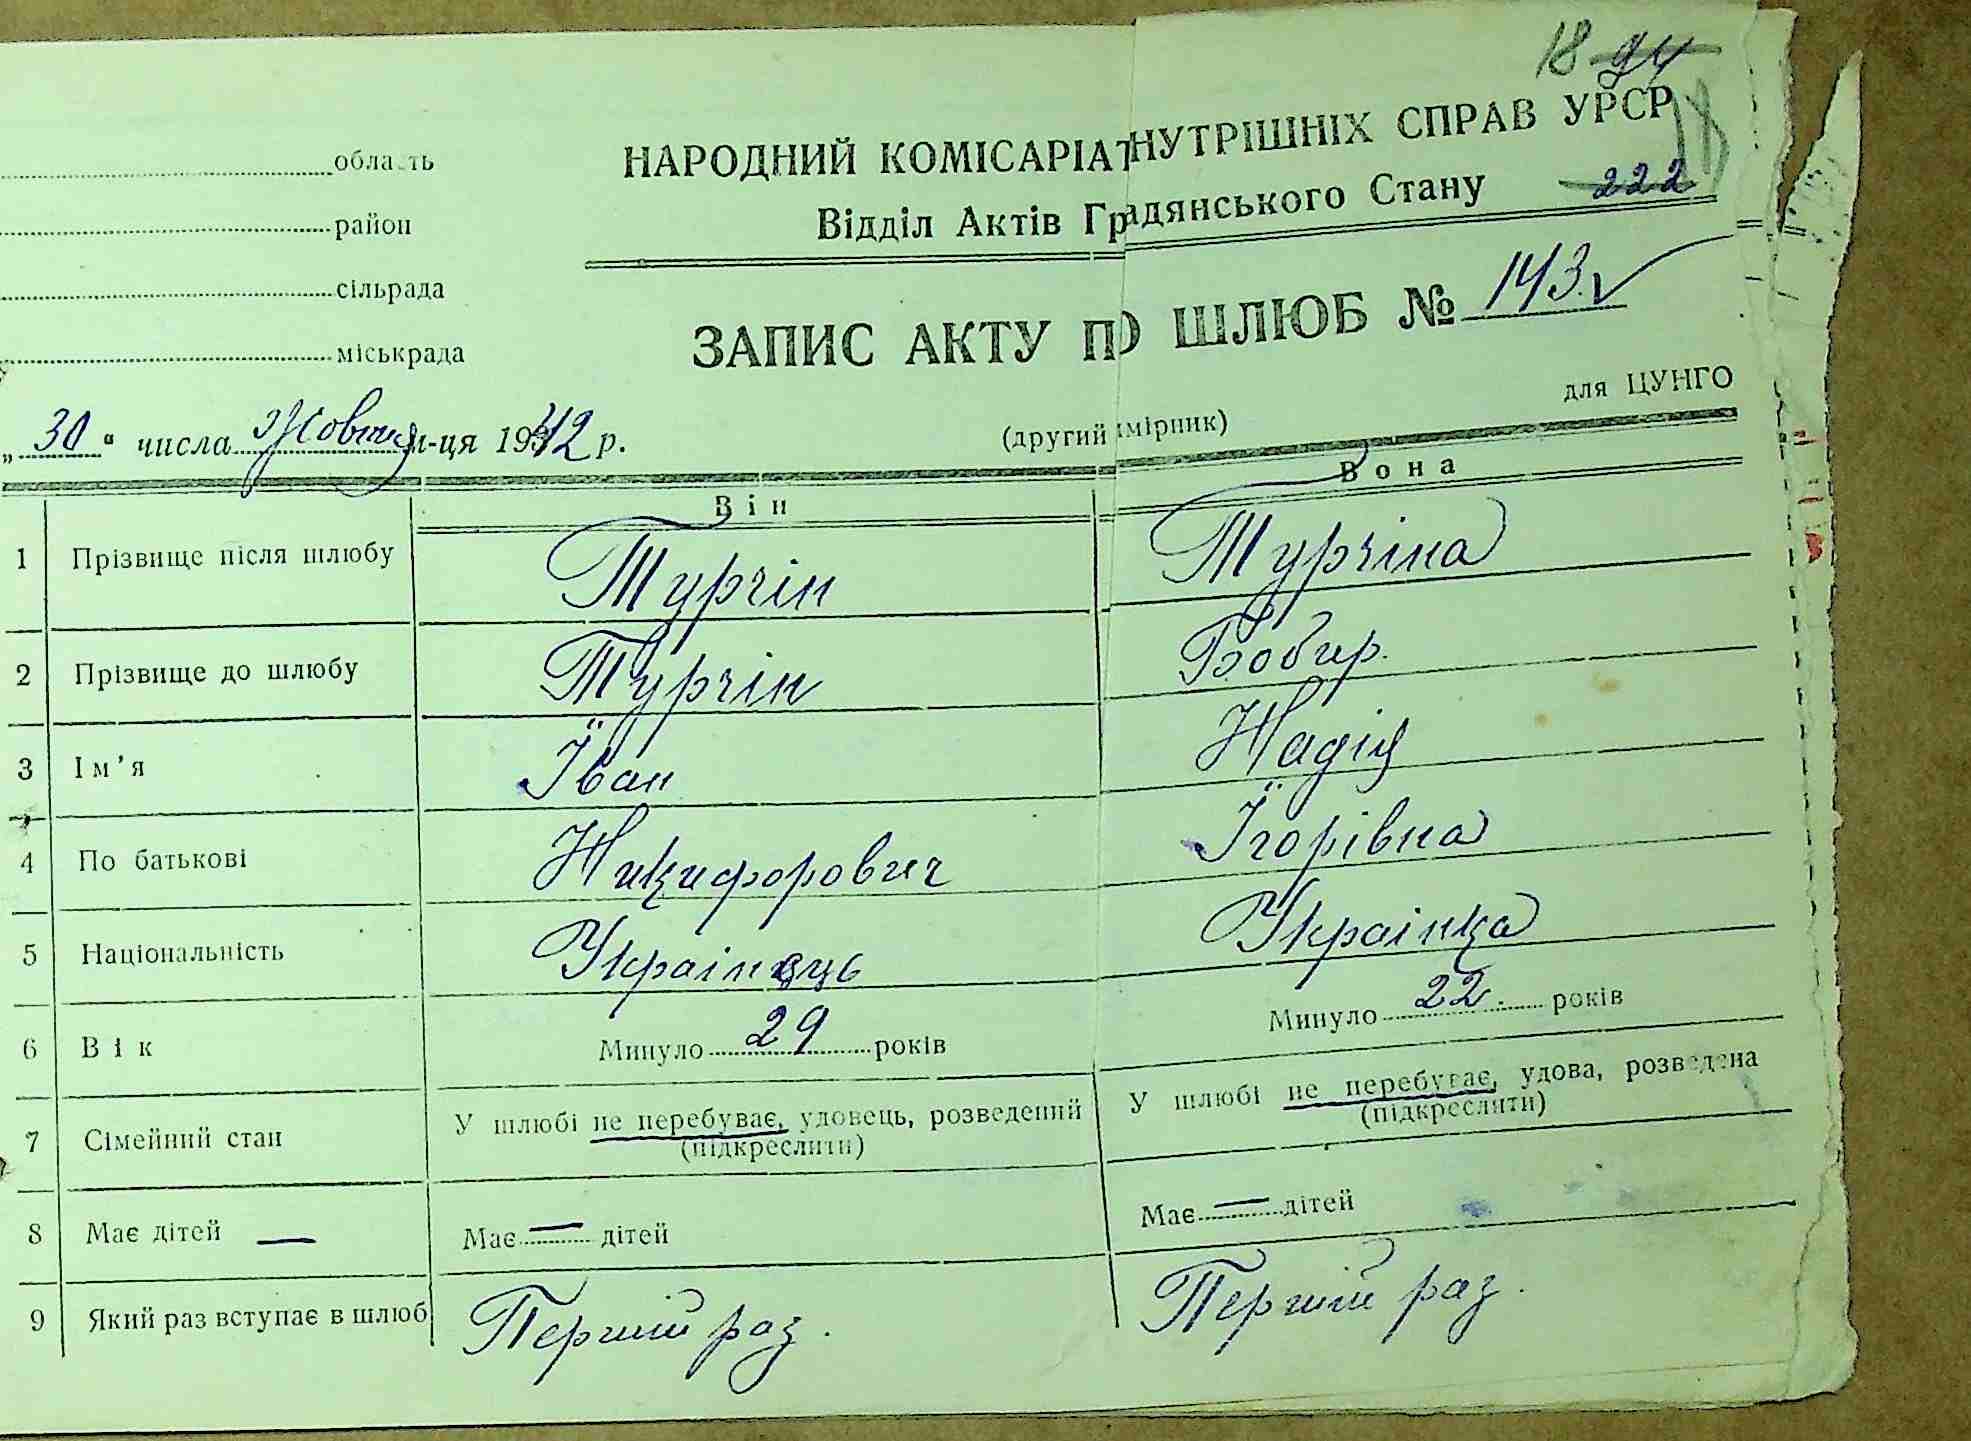 18 94
область
НАРОДНИЙ КОМІСАРІАТ НУТРІШНІХ СПРАВ УРСР
18
район
Відділ Актів Градянського Стану 222
сільрада
ЗАПИС АКТУ ПО ШЛЮБ № 143
міськрада
для ЦУНГО
„30“ числа Жовтня м-ця 1942 р.
(другий мірник)
Він Вона
1 Прізвище після шлюбу Турчін Турчіна
2 Прізвище до шлюбу Турчін Бобир.
3 Ім’я Їван Надія
4 По батькові Никифорович Їгорівна
5 Національність Украінець Украінка
6 Вік Минуло 29 років Минуло 22 років
7 Сімейний стан У шлюбі не перебуває, удовець, розведений У шлюбі не перебуває, удова, розведена
(підкреслити) (підкреслити)
8 Має дітей — Має — дітей Має — дітей
9 Який раз вступає в шлюб Перший раз. Перший раз.